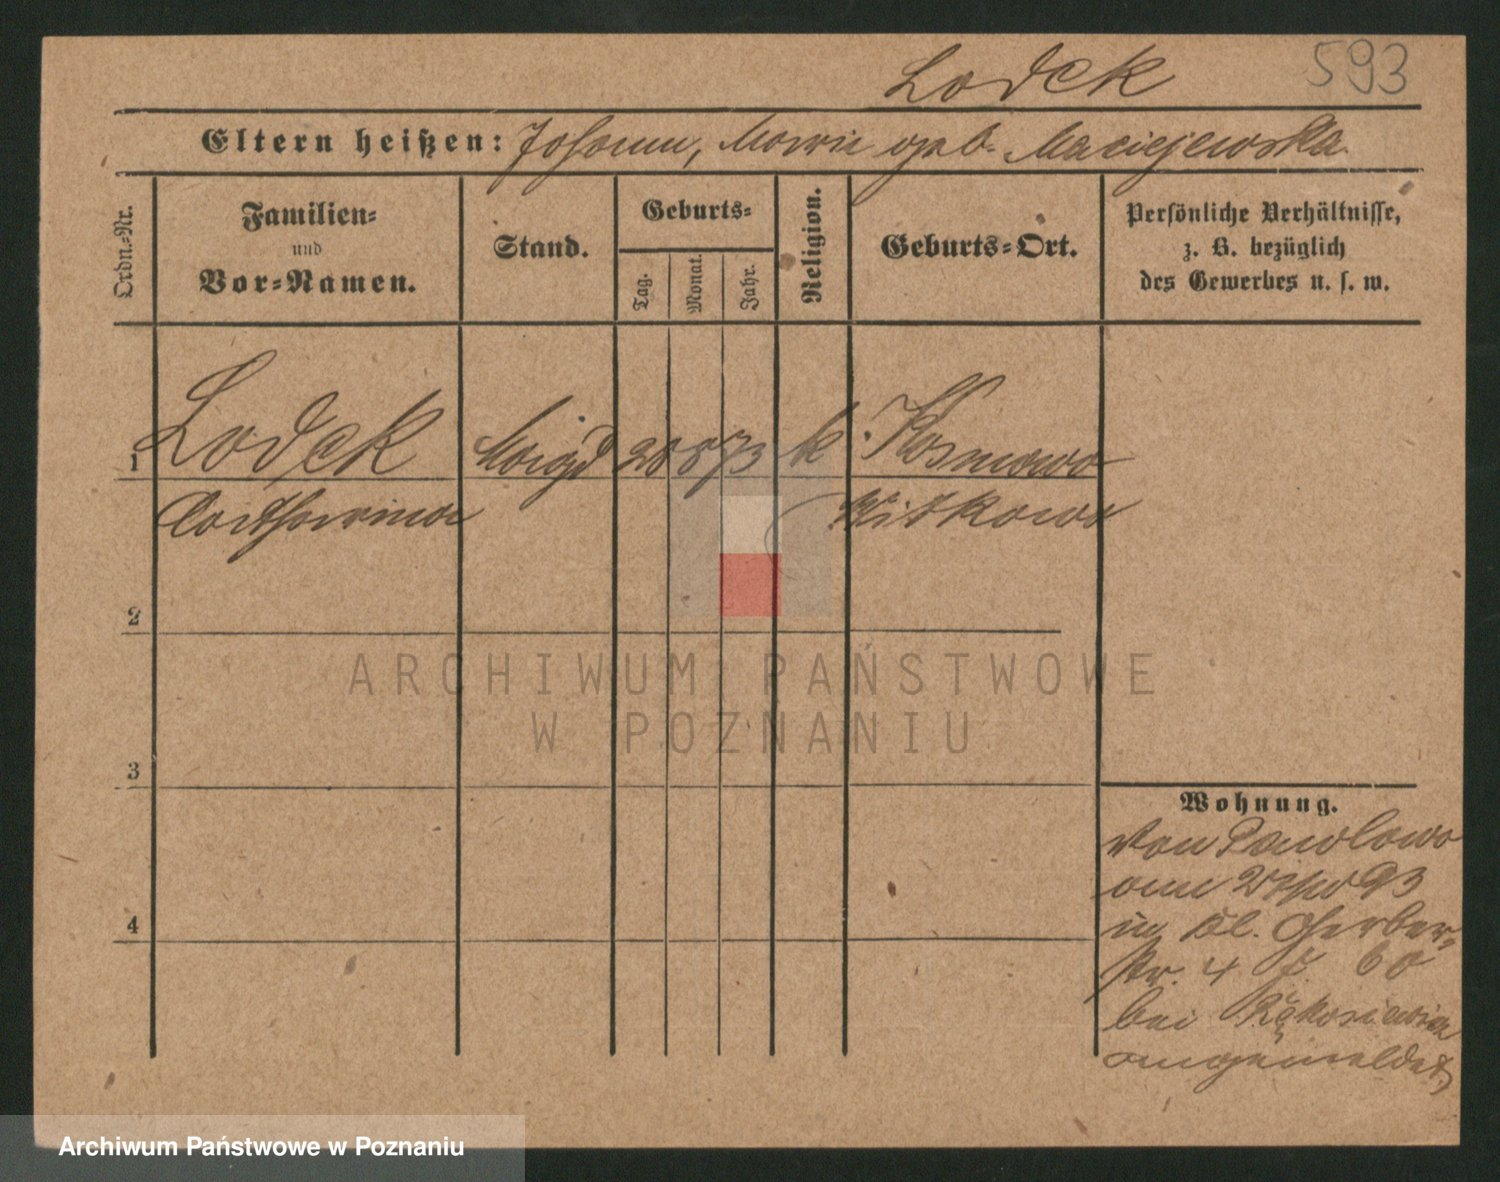 Lodek 593
Eltern heißen: Johann, Marie geb. Maciejewska
Ordn.-Nr.
Familien-
und
Vor-Namen.
Stand.
Geburts-
Tag.
Monat.
Jahr.
Religion.
Geburts-Ort.
Persönliche Verhältnisse,
z. B. bezüglich
des Gewerbes u. s. w.
1 Lodek Magd 28 8 73 k Kosmowo
Catharina Witkowo
2
3
4
Wohnung.
Von Pawlowo
am 93
in Kl. Gerber-
str. 4
bei
angemeldet
ARCHIWUM PAŃSTWOWE
W POZNANIU
Archiwum Państwowe w Poznaniu